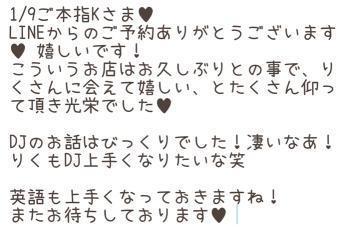 1/9ご本指Kさま♥
LINEからのご予約ありがとうございます
♥ 嬉しいです！
こういうお店はお久しぶりとの事で、り
くさんに会えて嬉しい、とたくさん仰っ
て頂き光栄でした♥

DJのお話はびっくりでした！凄いなあ！
りくもDJ上手くなりたいな笑

英語も上手くなっておきますね！
またお待ちしております♥